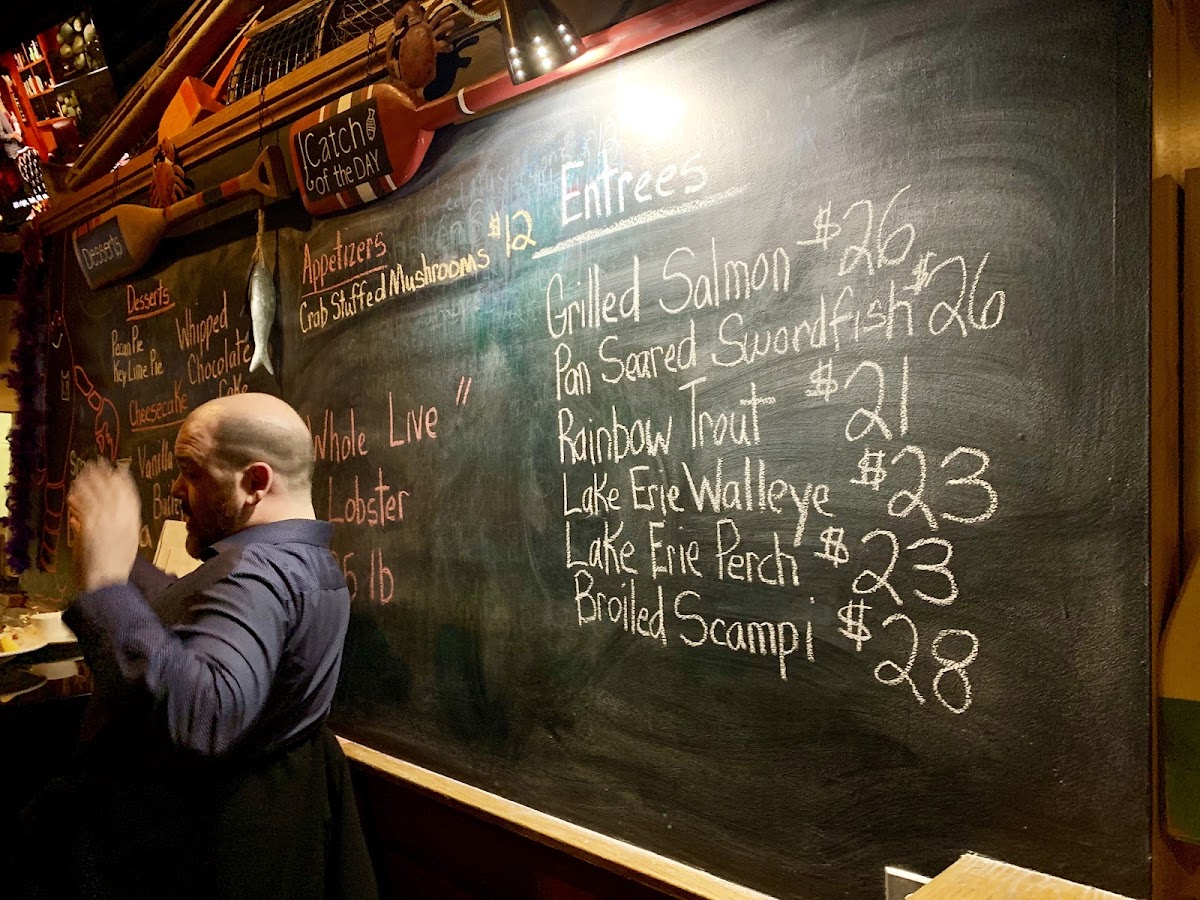 Desserts
Catch
of the DAY
Desserts
Pecan Pie
Key Lime Pie
Cheesecake
Vanilla
Whipped
Chocolate
Cake
Appetizers
Crab Stuffed Mushrooms $12
Whole Live "
Lobster
5 lb
Entrees
Grilled Salmon $26
Pan Seared Swordfish $26
Rainbow Trout $21
Lake Erie Walleye $23
Lake Erie Perch $23
Broiled Scampi $28